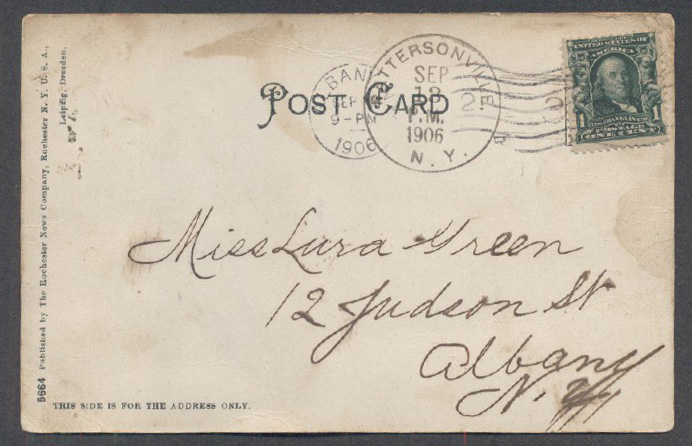 5664 Published by The Rochester News Company, Rochester N. Y. U. S. A.,
Leipzig, Dresden.
POST CARD
ALBANY
SEP
9-PM
1906
PATTERSONVILLE
SEP
13
P.M.
1906
N. Y.
2
UNITED STATES OF
AMERICA
1
POSTAGE
ONE CENT
1
Miss Lura Green
12 Judson St
Albany
N. Y.
THIS SIDE IS FOR THE ADDRESS ONLY.